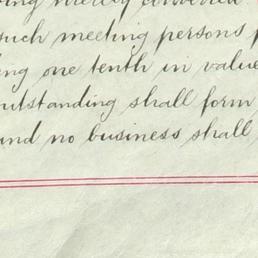 such meeting persons
one tenth in value
outstanding shall form
and no business shall